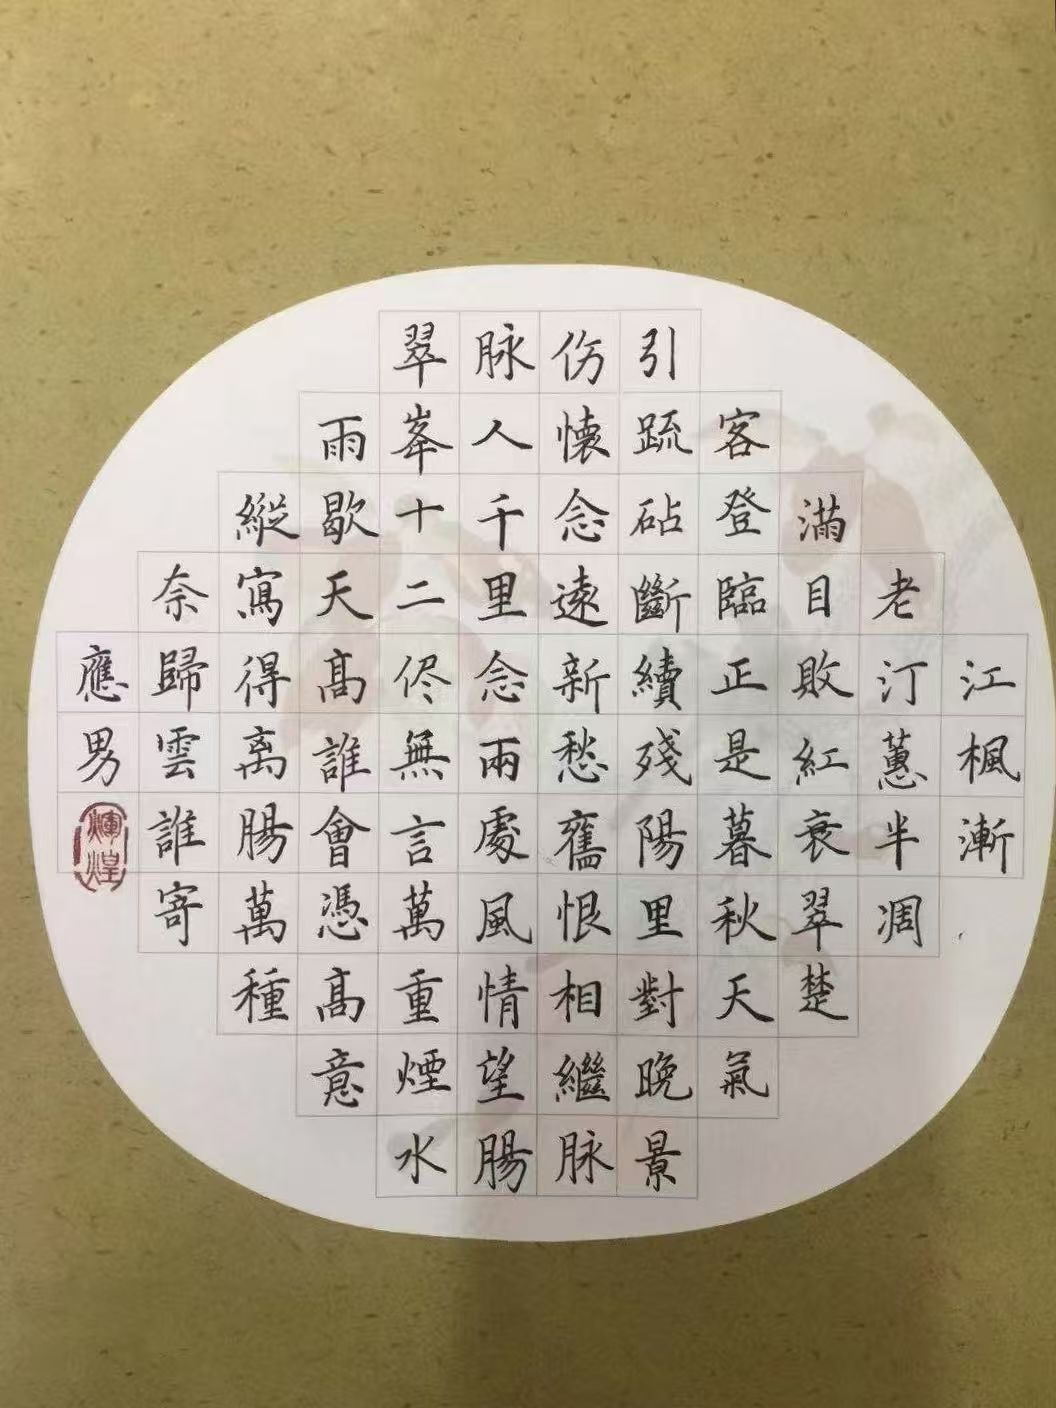 江楓漸
老汀蕙半凋
滿目敗紅衰翠楚
客登臨正是暮秋天氣
引疏砧斷續殘陽里對晚景
伤懷念遠新愁舊恨相繼
脉人千里念兩處風情望腸
翠峯十二侭無言萬重煙水
雨歇天高誰會憑高意
縱寫得离腸萬種
奈歸雲誰寄
應男
輝煌